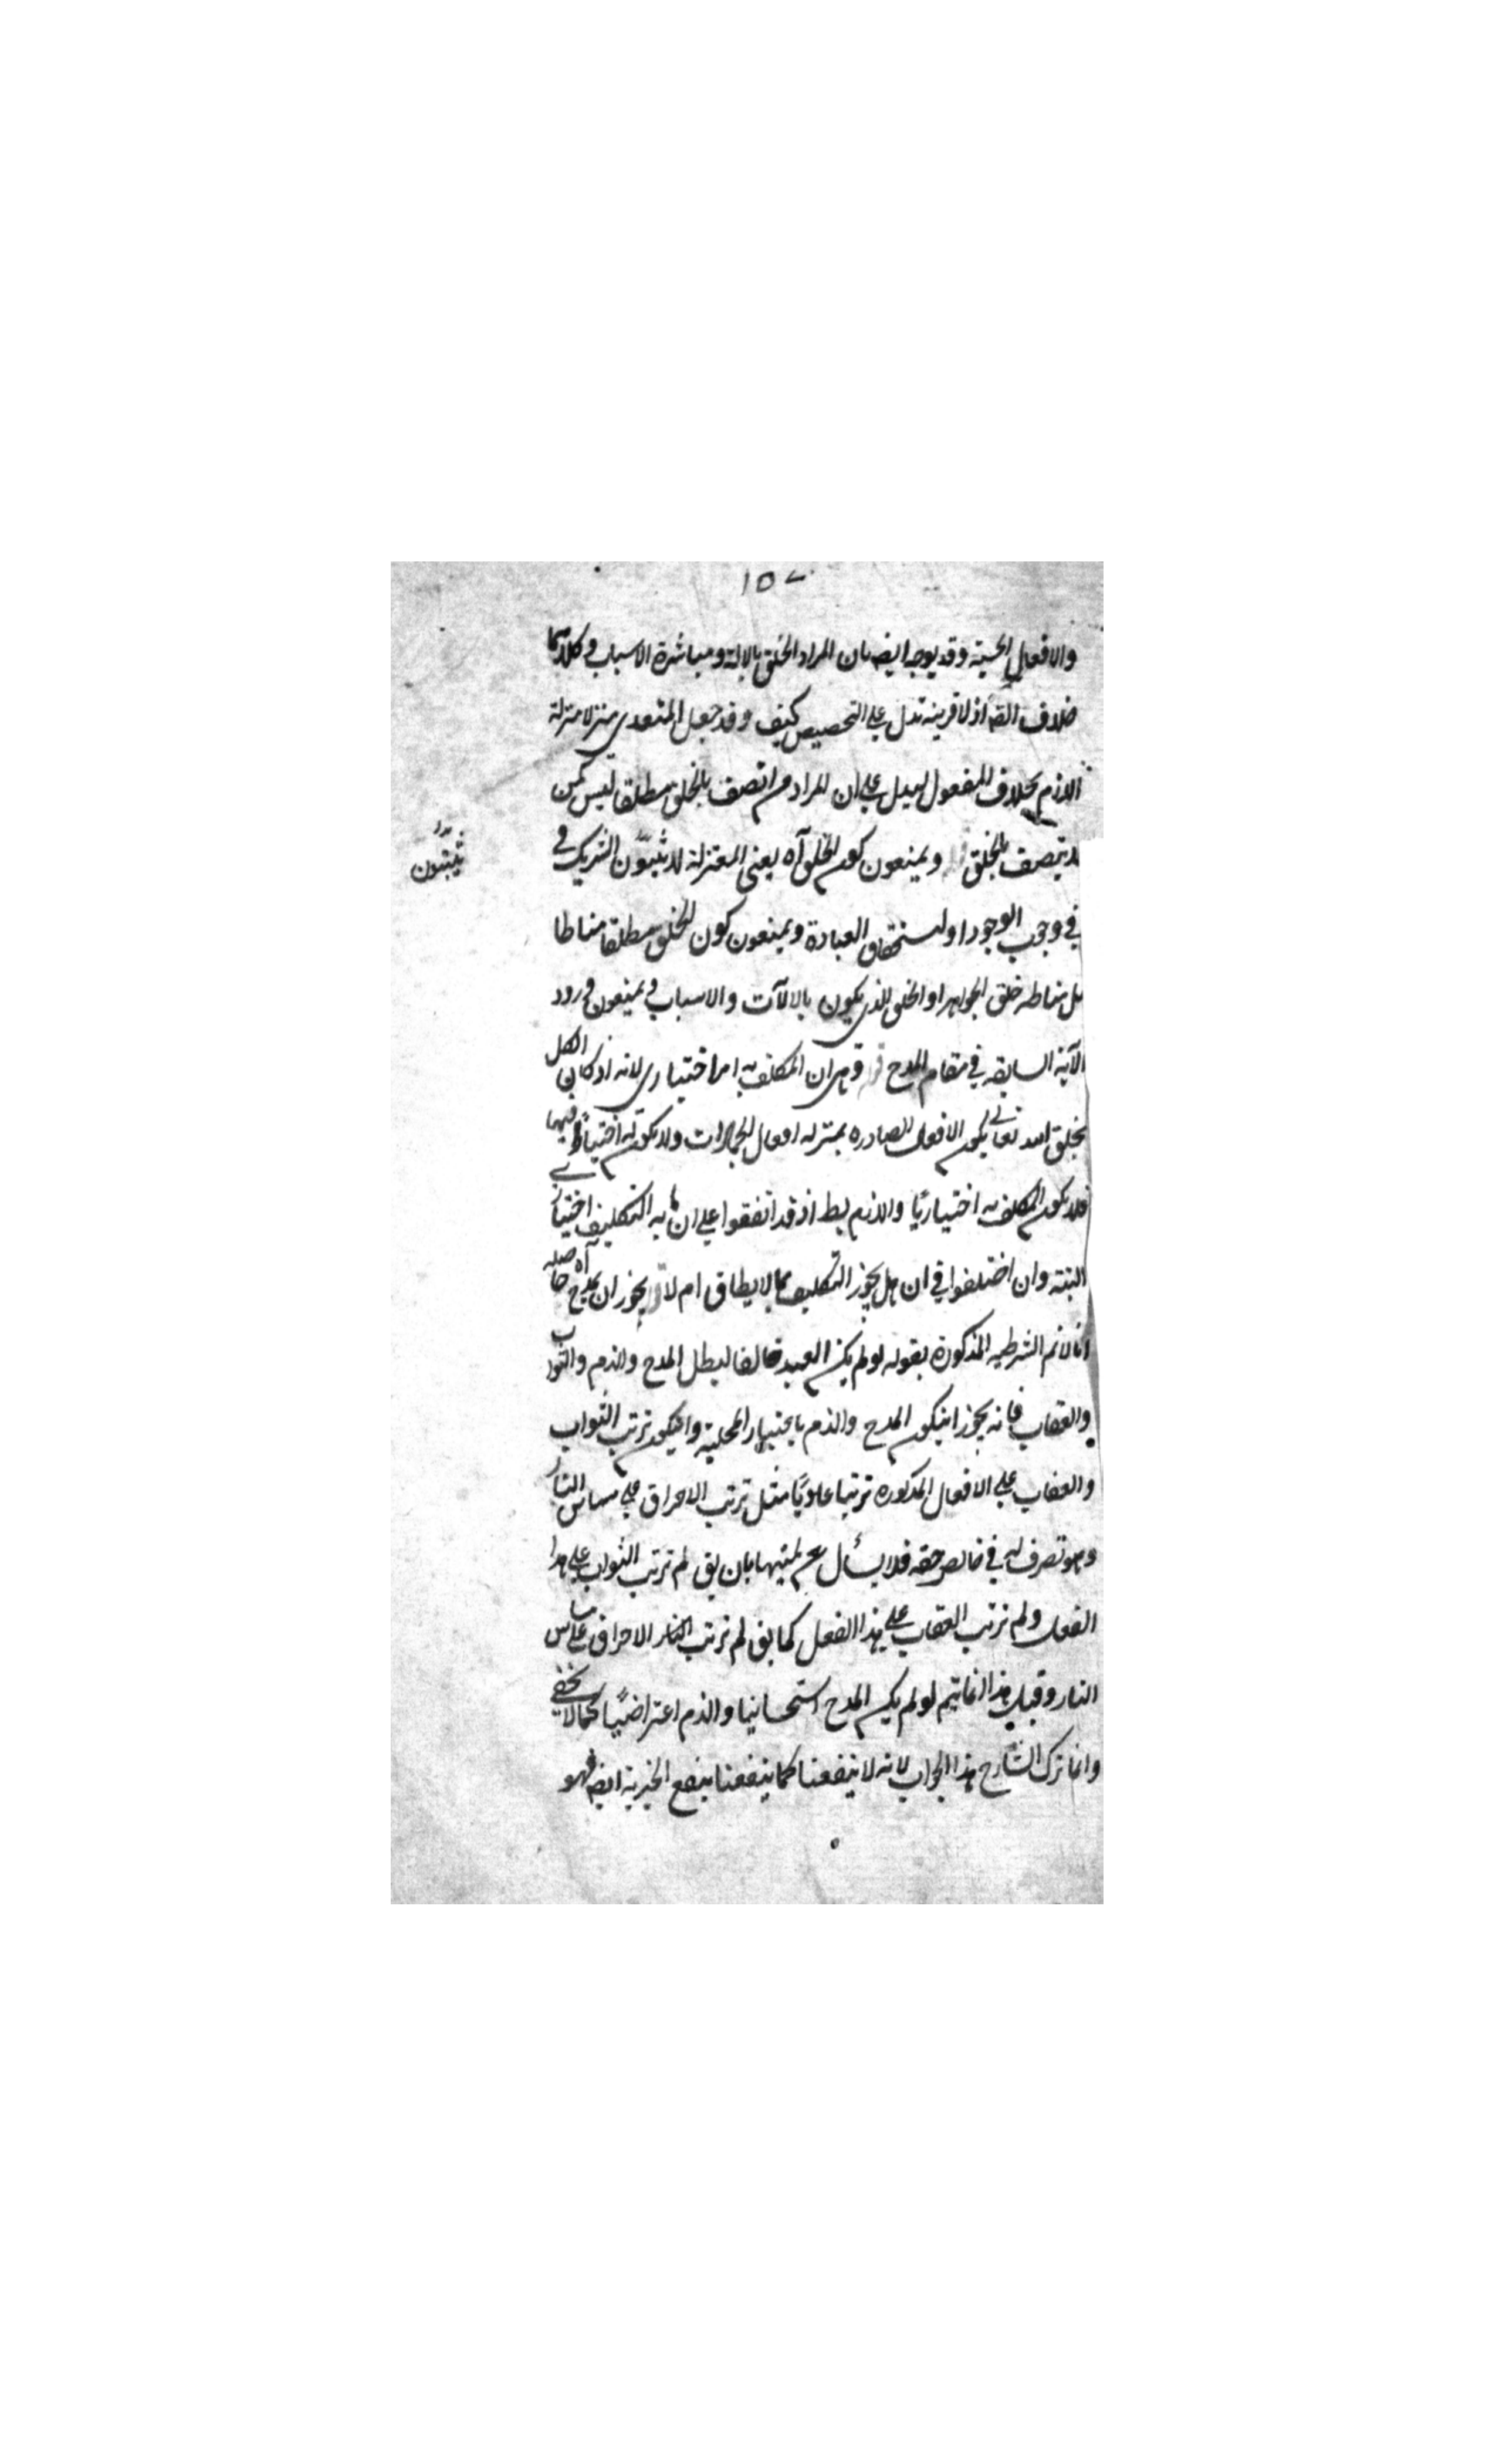 ١٥٧
والافعال الحسية وقد يوجه ايضه بان المراد الخلق بالالة ومباشرة الاسباب وكلاهما
خلاف الظ اذ لا قرينه تدل على التخصيص كيف وقد جعل المتعدى منزلا منزلة
اللازم بحذف المفعول ليدل على ان المراد من اتصف بالخلق مطلقا ليس كمن
لا يتصف بالخلق ويمنعون كون الخلق آه يعنى المعتزلة لا يثبتون الشريك فى
يثبتون
فى وجوب الوجود او استحقاق العبادة ويمنعون كون الخلق مطلقا مناطا
بل مناطه خلق الجواهر او الخلق الذى يكون بالالآت والاسباب ويمنعون ورود
الآية السابقه فى مقام المدح قوله وهى ان المكلف به امر اختيارى لانه اذ كان الكل
بخلق الله تعالى يكون الافعال الصادره بمنزله افعال الجمادات ولا يكون له اختيار فيها
فلا يكون المكلف به اختياريًا واللازم بط اذ قد اتفقوا على ان ما به التكليف اختيارى
البتته وان اختلفوا فى ان هل يجوز التكليف بما لا يطاق ام لا قوله يجوز ان يمدح آه حاصله
انا لانم الشرطيه المذكورة بقوله لو لم يكن العبد خالقا لبطل المدح والذم والثواب
والعقاب فانه يجوز انيكون المدح والذم باعتبار المحلية وانيكون ترتب الثواب
والعقاب على الافعال المذكوره ترتبا عاديًا مثل ترتب الاحراق على مساس النار
وهو تصرف له فى خالص حقه فلا يسأل عن لميتها بان يق لم ترتب الثواب على هذا
الفعل ولم ترتب العقاب على هذا الفعل كما يق لم ترتب الاحراق على مساس
النار وقيل هذا انما يتم لو لم يكن المدح استحسانيا والذم اعتراضيًا كما لا يخفى
وانما ترك الشارح هذا الجواب لانه لا ينفعنا كما ينفعنا ينفع الجبرية ايضه فهو